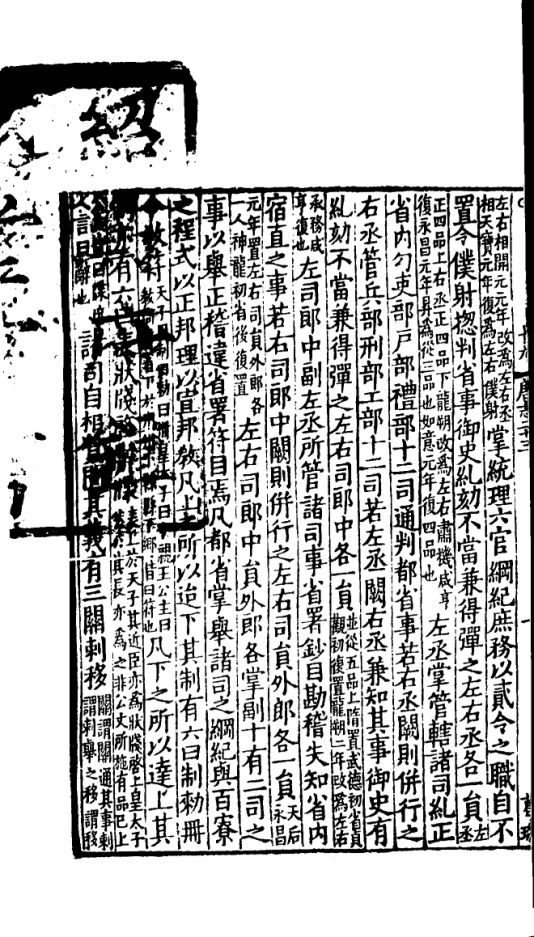 左右相開元元年改爲左右丞相天寶元年復爲左右僕射掌統理六官綱紀庶務以貳令之職自不
置令僕射揔判省事御史糺劾不當兼得彈之左右丞各一員左丞
正四品上右丞正四品下龍朔改爲左右肅機咸亨復永昌元年昇爲從三品也如意元年復四品也左丞掌管轄諸司糺正
省內勾吏部戸部禮部十二司通判都省事若右丞闕則併行之
右丞管兵部刑部工部十二司若左丞闕右丞兼知其事御史有
糺劾不當兼得彈之左右司郎中各一員並從五品上隋置武德初省貞觀初復置龍朔二年改爲左右
承務咸亨復也左司郎中副左丞所管諸司事省署鈔目勘稽失知省內
宿直之事若右司郎中闕則併行之左右司員外郎各一員天后永昌
元年置左右司員外郎各一人神龍初省後復置左右司郎中員外郎各掌副十有二司之
事以舉正稽違省署符目焉凡都省掌舉諸司之綱紀與百寮
之程式以正邦理以宣邦教凡上之所以迨下其制有六曰制勑冊
令教符天子曰制曰勑曰冊皇太子曰令親王公主曰教符曰符也凡下之所以達上其
有六狀牋啓於天子其近臣亦爲狀牋啓上皇太子其長亦爲之非公文所施有品已上
言曰辭也諸司自相質問其義有三關刺移關謂關通其事刺謂刺舉之移謂移
紹